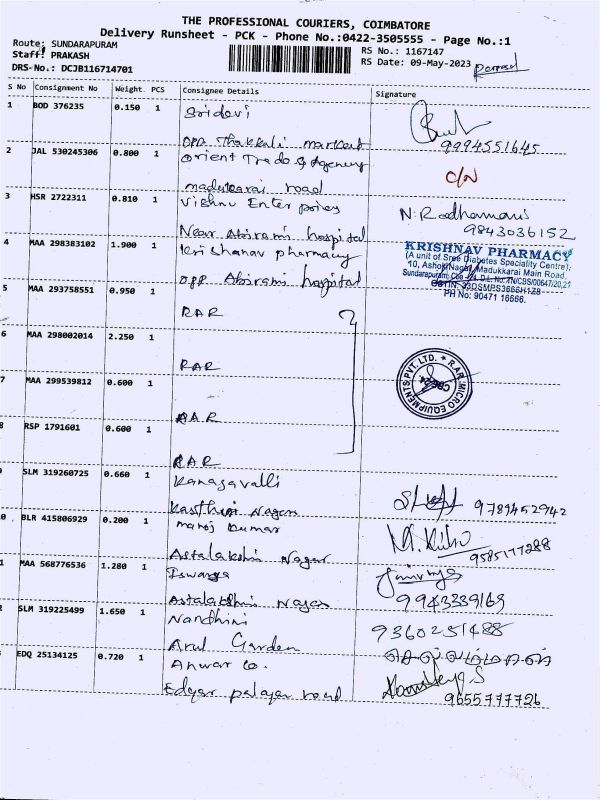 THE PROFESSIONAL COURIERS, COIMBATORE
Delivery Runsheet - PCK - Phone No.:0422-3505555 - Page No.:1
Route: SUNDARAPURAM
RS No.: 1167147
Staff: PRAKASH
RS Date: 09-May-2023
DRS-No.: DCJB116714701
S No Consignment No Weight. PCS Consignee Details Signature
1 BOD 376235 0.150 1 Sridevi
Opp. Thakkali market 9994551645
2 JAL 530245306 0.800 1 Orient Trade & Agency
madukarai road C/N
3 HSR 2722311 0.810 1 Vishnu Enterprises N. Radhamani
Near Abirami hospital 9843036152
4 MAA 298383102 1.900 1 Krishanav pharmacy
Opp. Abirami hospital
KRISHNAV PHARMACY
(A unit of Sree Diabetes Speciality Centre),
10, Ashok Nagar, Madukkarai Main Road,
Sundarapuram, Cbe
PH No: 90471 16666.
5 MAA 293758551 0.950 1
RAR
6 MAA 298002014 2.250 1
RAR
7 MAA 299539812 0.600 1
RAR
8 RSP 1791601 0.600 1
RAR
R.A.R. MICRO EQUIPMENTS PVT. LTD.
9 SLM 319260725 0.660 1 Kanagavalli
Kasthuri Nagar 9789452942
0 BLR 415806929 0.200 1 Manoj Kumar
Astalakshmi Nagar 9585177288
1 MAA 568776536 1.280 1 Iswarya
Astalakshmi Nagar 9943339169
2 SLM 319225499 1.650 1 Nandhini 9360251488
Arul Garden
EDQ 25134125 0.720 1 Anwar co.
Edayar palayar road 9655777726